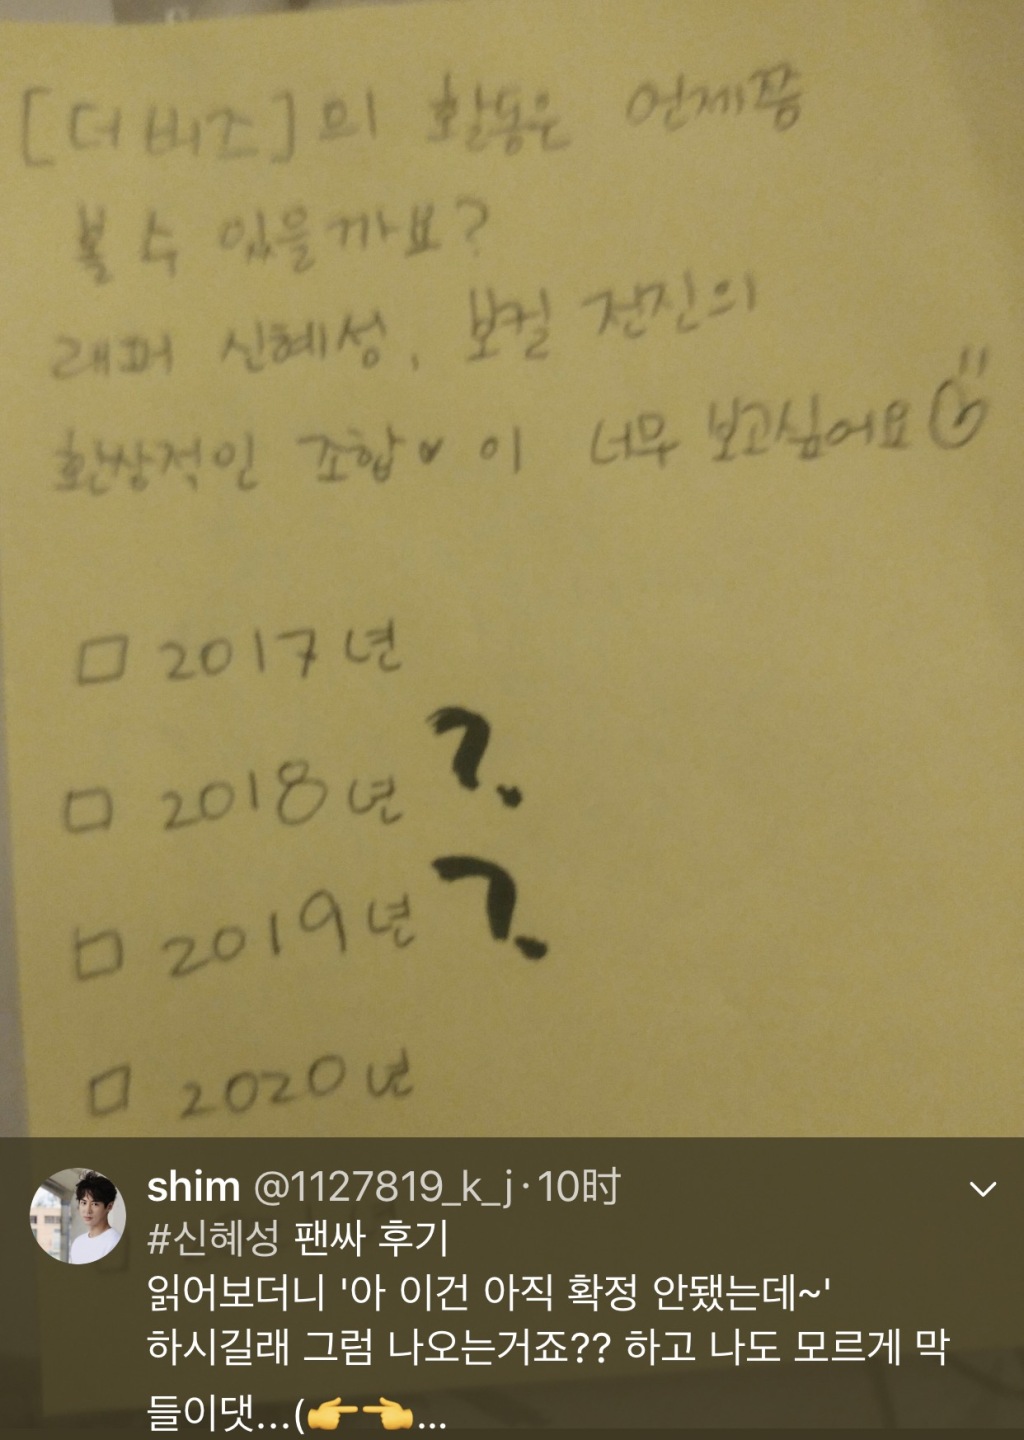 [더 비즈]의 활동은 언제쯤
볼 수 있을까요?
래퍼 신혜성, 보컬 전진의
환상적인 조합♥이 너무 보고싶어요
□ 2017년
□ 2018년 ?
□ 2019년 ?
□ 2020년
shim @1127819_k_j · 10时
#신혜성 팬싸 후기
읽어보더니 '아 이건 아직 확정 안됐는데~'
하시길래 그럼 나오는거죠?? 하고 나도 모르게 막
들이댓...(👉👈...